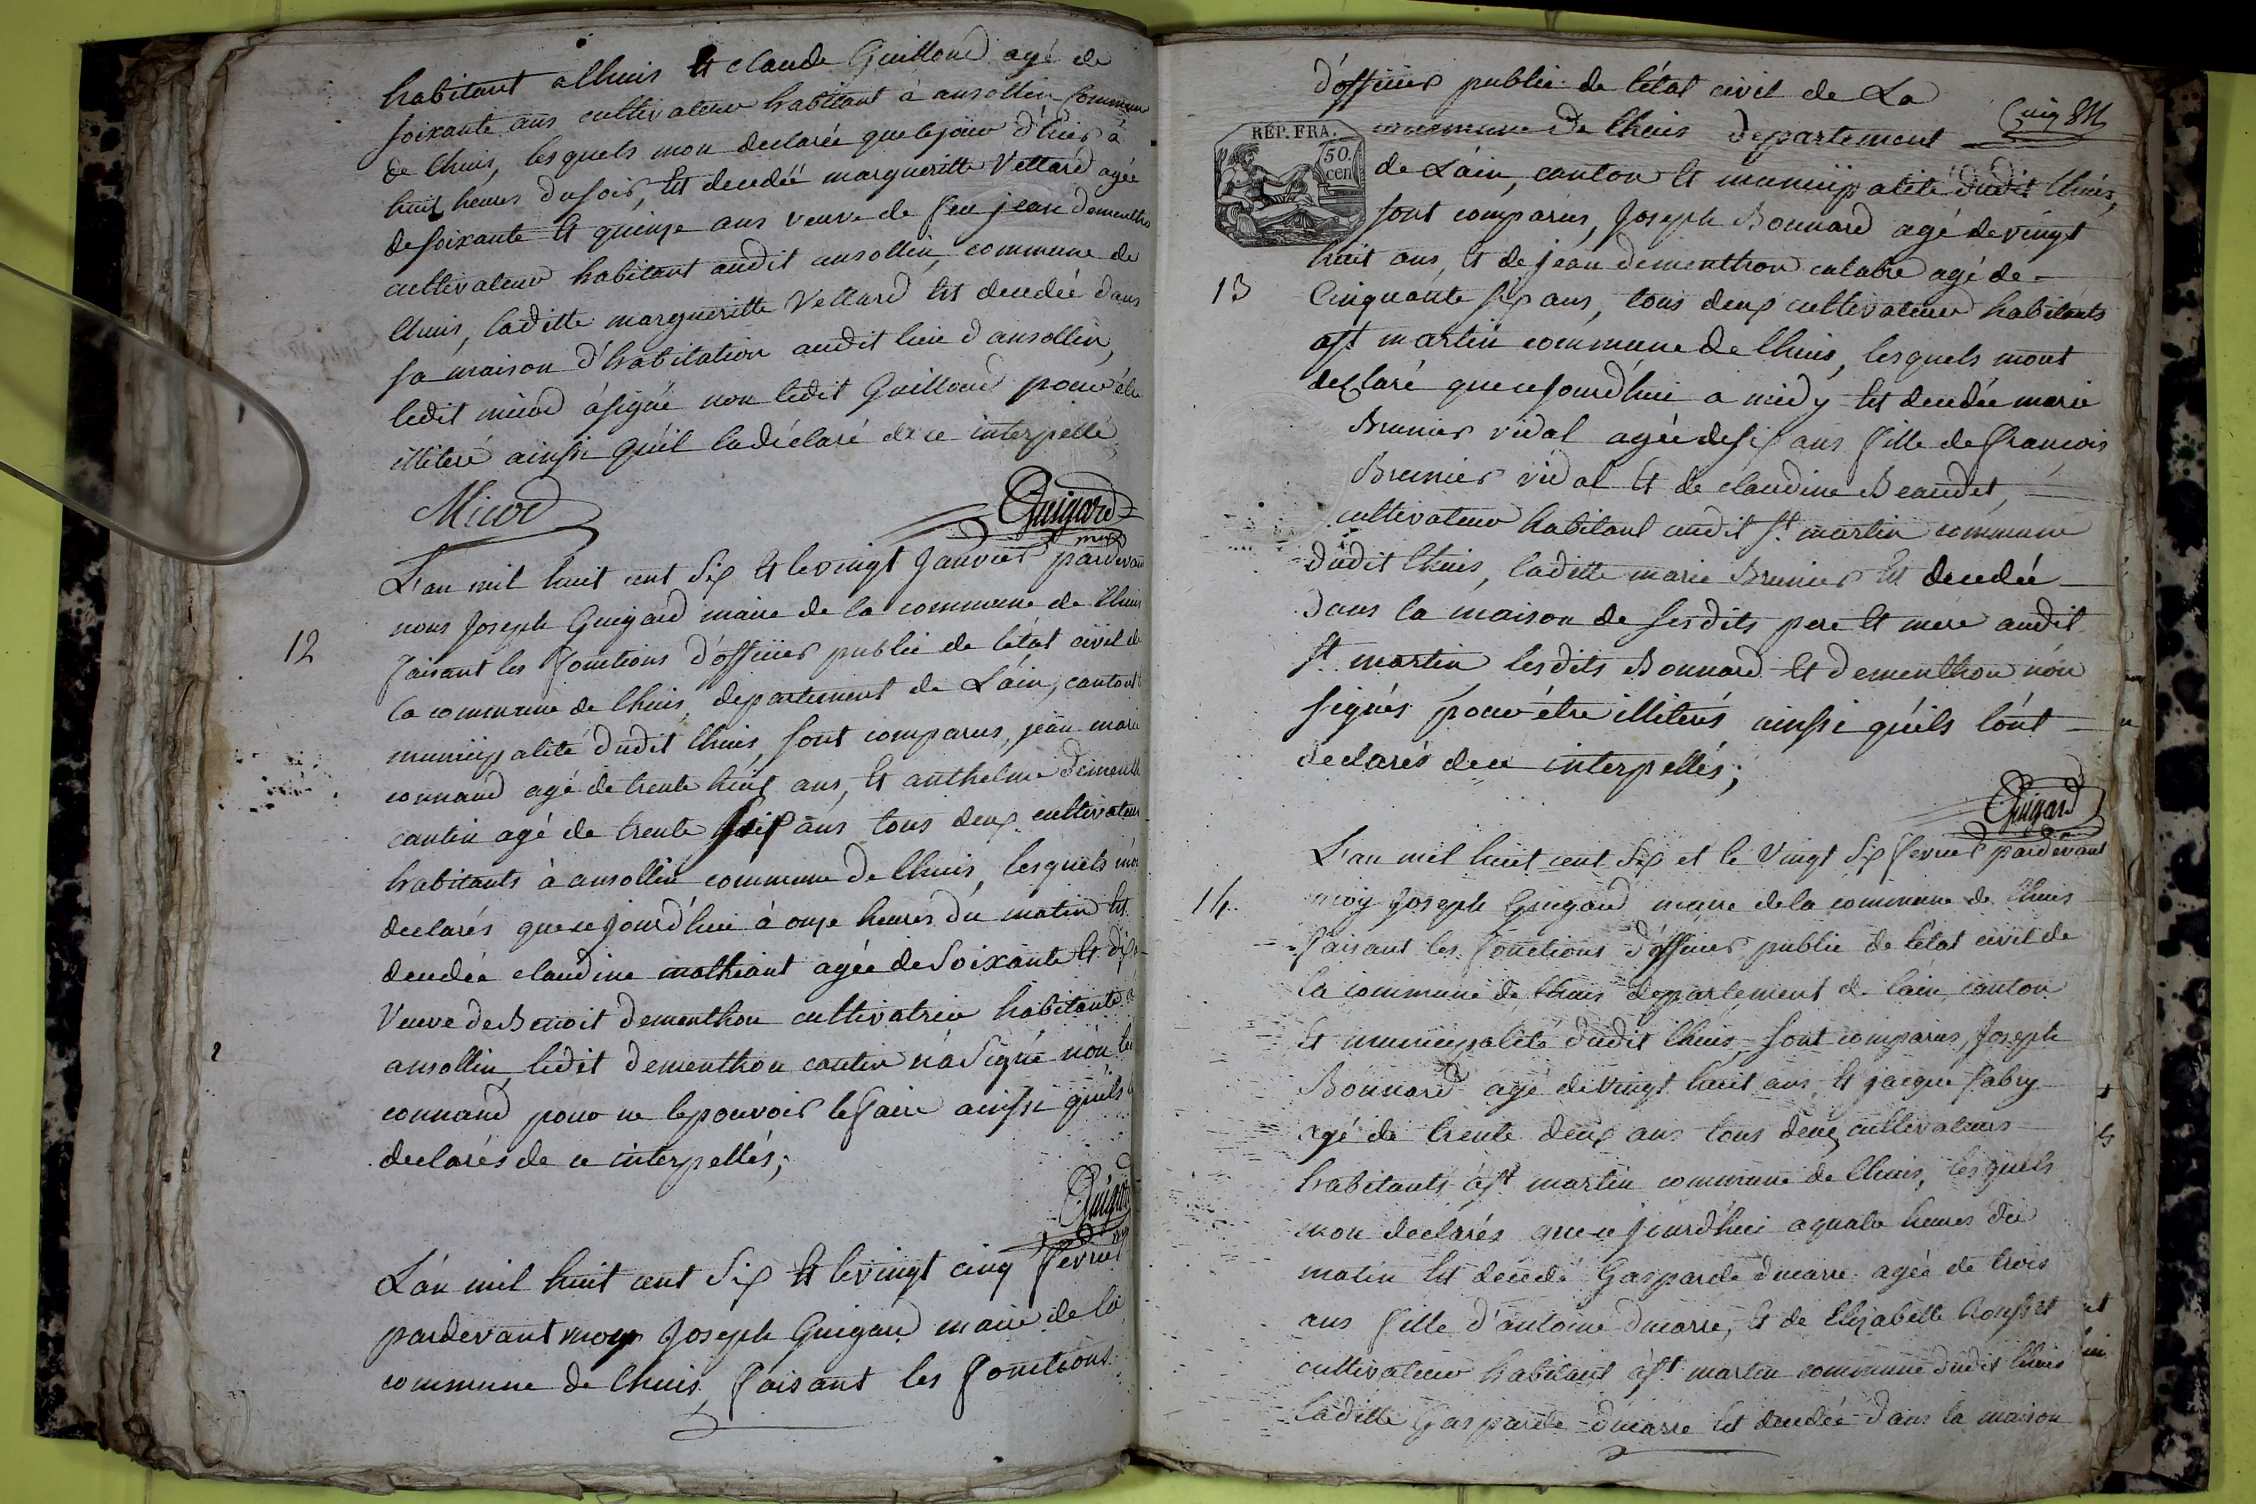 habitant a lhuis et claude Guilloud agé de
soixante ans cultivateur habitant à ansollin Commune
de lhuis, lesquels mon declarée que le jour d'hier à
huit heures du soir, est decedéé margueritte Vettard agée
de soixante et quinze ans veuve de feu jean dementhon
cultivateur habitant audit ansollin, commune de
lhuis, laditte margueritte Vettard est decedée dans
sa maison d'habitation audit lieu d'ansollin,
ledit micod à signé non ledit Guilloud pour être
illiteré ainssi qu'il la déclaré de ce interpellé
Micod
Guigard
maire
L'an mil huit cent six et le vingt Janvier pardevant
12
nous Joseph Guigard maire de la commune de lhuis
faisant les fonctions d'officier public de l'état civil de
la commune de lhuis, departement de L'ain, canton et
municipalité dudit lhuis, sont comparus, jean marie
connand agé de trente huit ans, et anthelme dementhon
cantin agé de trente ans tous deux cultivateurs
habitants à ansollin commune de lhuis, lesquels mon
declarés que ce jourd'hui à onze heures du matin est
decedée claudine mathiant agée de Soixante et dix
Veuve de Benoit dementhon cultivatrice habitante à
ansollin, ledit dementhon cantin n'a Signé non led
connand pour ne le pouvoir le faire ainssi qu'ils
declarés de ce interpellés;
Guigard
L'an mil huit cent Six et le vingt cinq fevrier
pardevant moy Joseph Guigard maire de la
commune de lhuis, faisant les fonctions
d'officier public de l'état civil de La
commune de lhuis departement
REP. FRA.
50.
cen
de L'ain, canton et municipalité dudit lhuis,
sont comparus, Joseph Bonnard agé de vingt
huit ans, et de jean dementhon calabre agé de
13
Cinquante six ans, tous deux cultivateur habitants
a st martin commune de lhuis, lesquels mont
declaré que ce jourd'hui a midy est decedée marie
Brunier vidal agée de six ans fille de françois
Brunier vidal et de claudine Beaudet,
cultivateur habitant audit st. martin commune
dudit lhuis, laditte marie Brunier est decedée
dans la maison de sesdits pere et mere audit
st. martin, lesdits Bonnard et dementhon nón
signés pour étre illiterés ainssi qu'ils lónt
declarés de ce interpellés;
Guigard
L'an mil huit cent six et le Vingt Six fevrier pardevant
14
moy Joseph Guigard maire de la commune de lhuis
faisant les fonctions d'officier public de l'état civil de
la commune de lhuis departement de lain, canton
et municipalité dudit lhuis, sont comparus, Joseph
Bonnard agé de vingt huit ans, et jacque fabry
agé de trente deux ans tous deux cultivateurs
habitants a st martin commune de lhuis, lesquels
mon declarés que ce jourd'hui a quatre heures du
matin est decedé Gasparde ducarre agée de trois
ans fille d'antoine ducarre, et de Elizabette Rousset
cultivateur habitant a st martin commune dudit lhuis
laditte Gasparde ducarre est decedée dans la maison